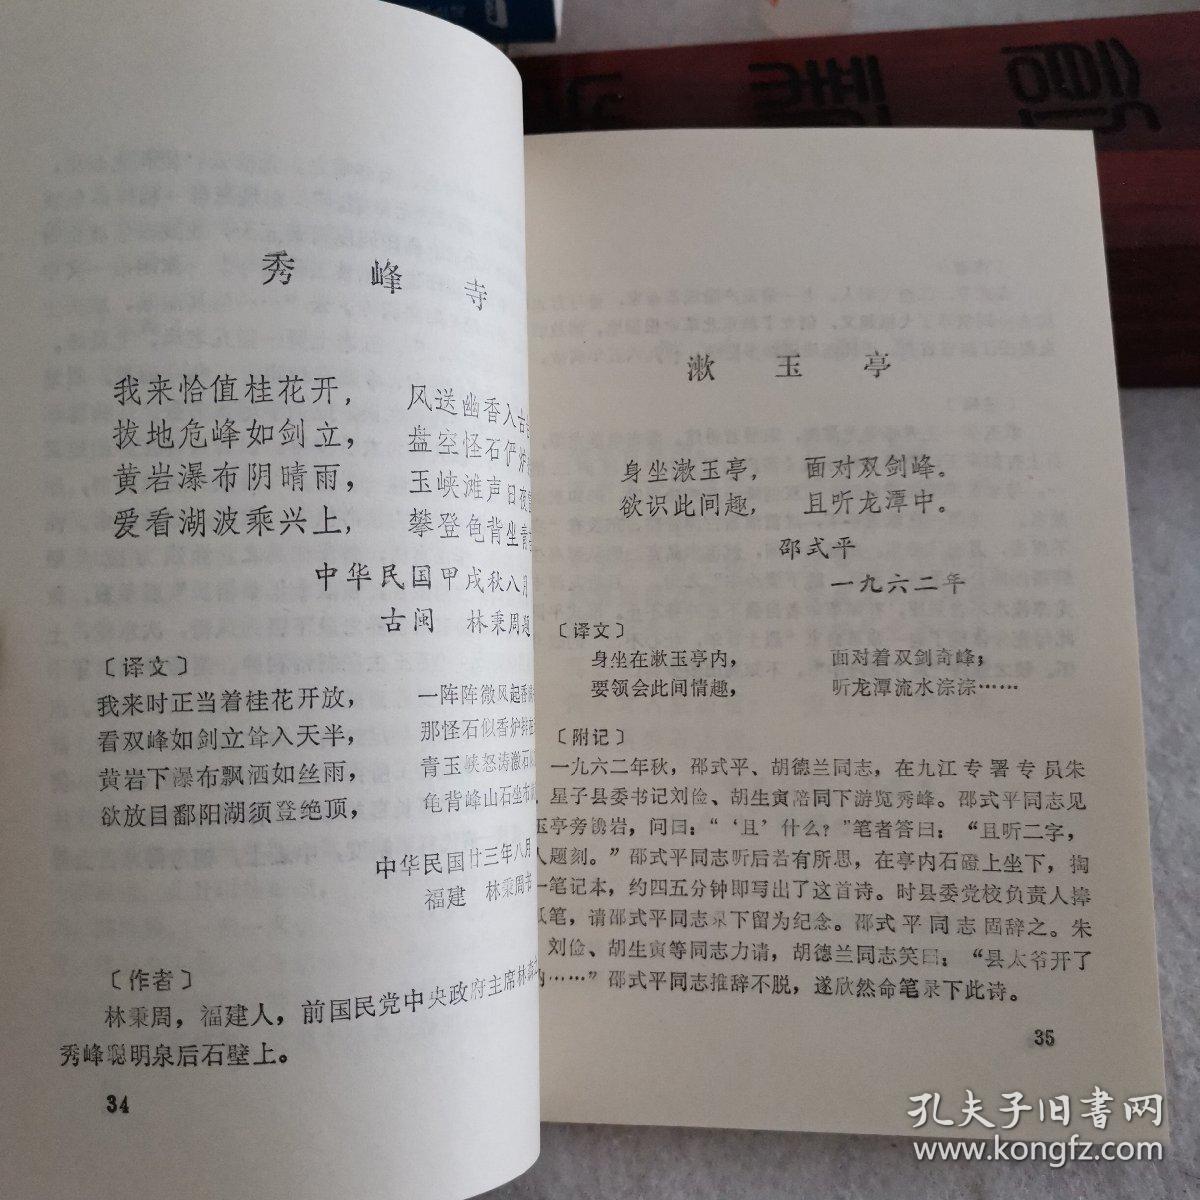 秀峰寺
我来恰值桂花开，风送幽香入古
拔地危峰如剑立，盘空怪石俨炉
黄岩瀑布阴晴雨，玉峡滩声日夜
爱看湖波乘兴上，攀登龟背坐青
中华民国甲戌秋八月
古闽 林秉周题
〔译文〕
我来时正当着桂花开放，一阵阵微风起香
看双峰如剑立耸入天半，那怪石似香炉
黄岩下瀑布飘洒如丝雨，青玉峡怒涛激石
欲放目鄱阳湖须登绝顶，龟背峰山石坐
中华民国廿三年八月
福建 林秉周书
〔作者〕
林秉周，福建人，前国民党中央政府主席林森
秀峰聪明泉后石壁上。
34
漱玉亭
身坐漱玉亭，面对双剑峰。
欲识此间趣，且听龙潭中。
邵式平
一九六二年
〔译文〕
身坐在漱玉亭内，面对着双剑奇峰；
要领会此间情趣，听龙潭流水淙淙……
〔附记〕
一九六二年秋，邵式平、胡德兰同志，在九江专署专员朱
星子县委书记刘俭、胡生寅陪同下游览秀峰。邵式平同志见
玉亭旁镌岩，问曰：“‘且’什么？”笔者答曰：“且听二字，
人题刻。”邵式平同志听后若有所思，在亭内石磴上坐下，掏
一笔记本，约四五分钟即写出了这首诗。时县委党校负责人捧
纸笔，请邵式平同志录下留为纪念。邵式平同志固辞之。朱
刘俭、胡生寅等同志力请，胡德兰同志笑曰：“县太爷开了
内……”邵式平同志推辞不脱，遂欣然命笔录下此诗。
35
孔夫子旧书网
www.kongfz.com